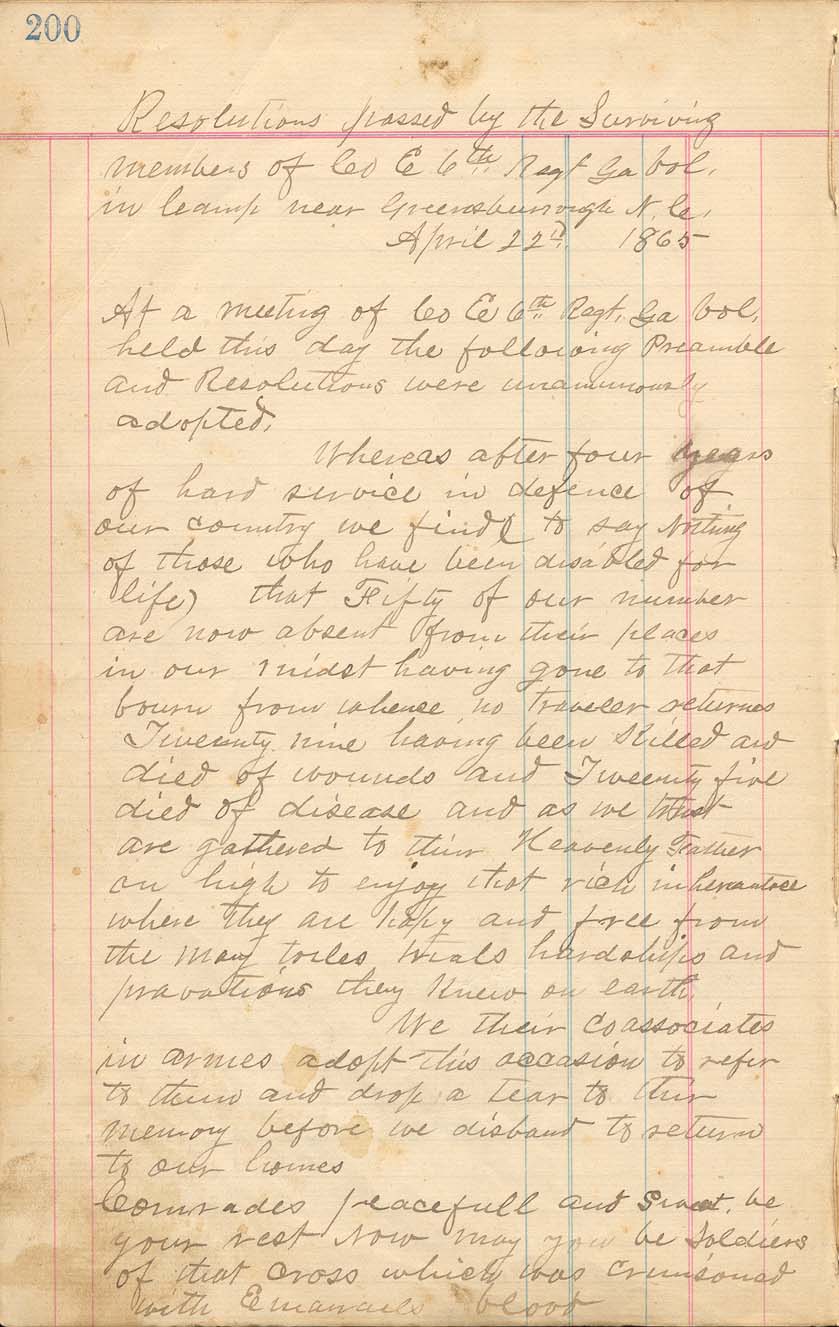 200
Resolutions passed by the Surviving
members of Co E 6th Regt Ga Vol.
in Camp near Greensburrough N. C.
April 22d 1865
At a meeting of Co E 6th Regt. Ga Vol.
held this day the following Preamble
and Resolutions were unanimously
adopted.
Whereas after four years
of hard service in defence of
our country we find ( to say Nothing
of those who have been disabled for
life) that Fifty of our number
are now absent from their places
in our midst having gone to that
bourn from whence no traveler returnes
Tweenty nine having been Killed and
died of wounds and Tweenty five
died of disease and as we trust
are gathered to thier Heavenly Father
on high to enjoy that rich
where they are hapy and free from
the many toiles trials hardships and
pravations they Knew on earth.
We their Coassociates
in armes adopt this occasion to refer
to them and drop a tear to thier
memory before we disband to return
to our homes
Comrades peacefull and Sweet be
your rest Now may you be Soldiers
of that Cross which was Crimsoned
with blood